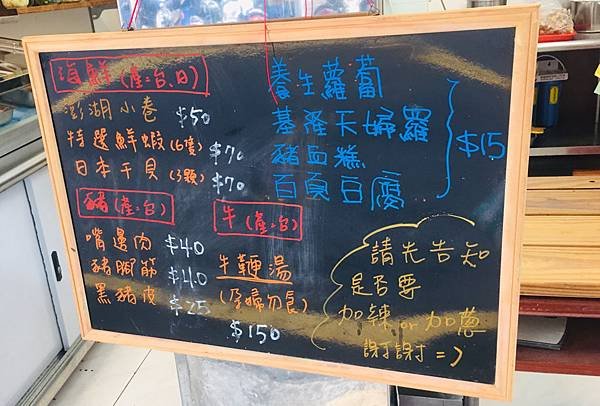 海鮮(產:台、日)
澎湖小卷 $50
特選鮮蝦(6隻) $70
日本干貝(3顆) $70
豬(產:台)
嘴邊肉 $40
豬腳筋 $40
黑豬皮 $25
牛(產:台)
牛鞭湯
(孕婦勿食)
$150
養生蘿蔔
基隆天婦羅
豬血糕
百頁豆腐
$15
請先告知
是否要
加辣or加蔥
謝謝=)